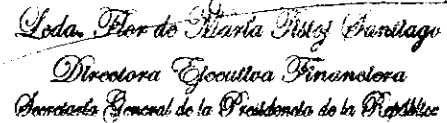 Lcda. Flor de María Pistoj Santiago
Directora Ejecutiva Financiera
Secretaría General de la Presidencia de la República